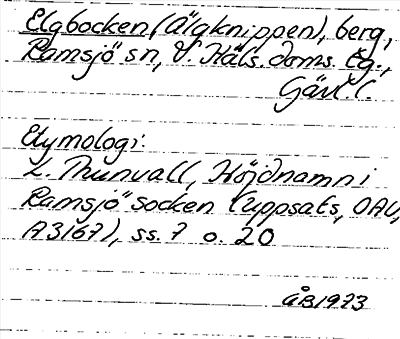 Elgbocken (Älgknippen), berg,
Ramsjö sn, V. Häls. doms. tg.,
Gävl. l.
Etymologi:
L. Thunvall, Höjdnamn i
Ramsjö socken (uppsats, OAU,
A3167), ss. 7 o. 20
ÅB 1973